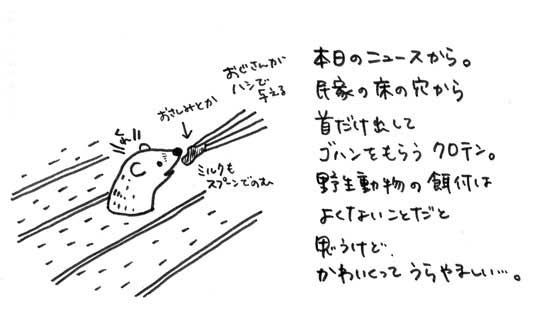 本日のニュースから。
民家の床の穴から
首だけ出して
ゴハンをもらうクロテン。
野生動物の餌付は
よくないことだと
思うけど、
かわいくってうらやましい…。
おじさんが
ハシで
与える
おさしみとか
ミルクも
スプーンでのむ